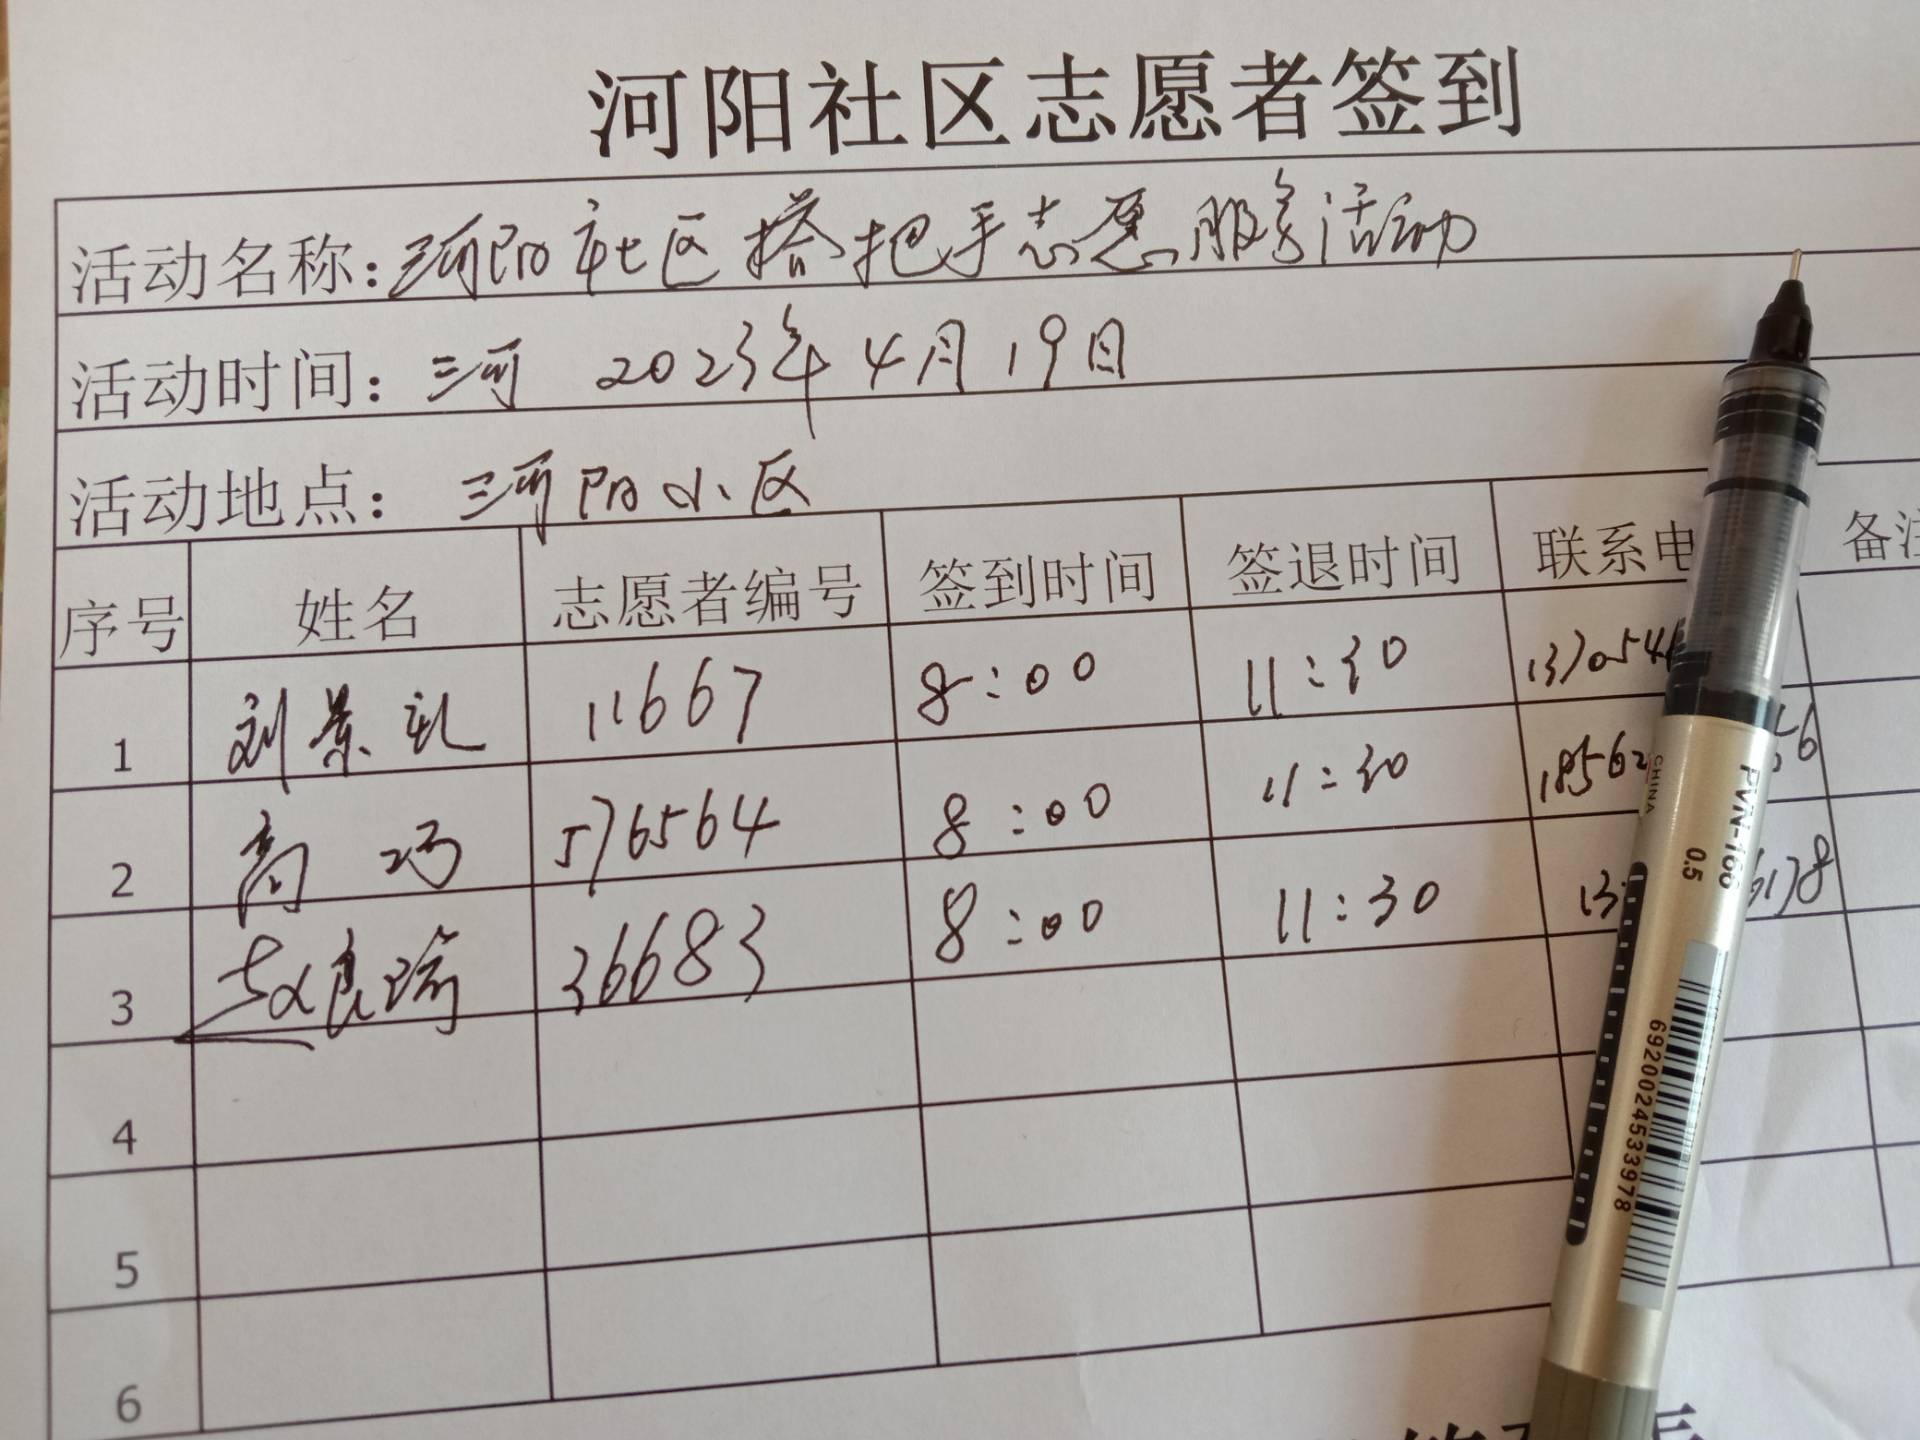 河阳社区志愿者签到
活动名称：河阳社区搭把手志愿服务活动
活动时间：河 2023年4月19日
活动地点：河阳小区
序号 姓名 志愿者编号 签到时间 签退时间 联系电 备注
1 刘景礼 11667 8:00 11:30 137054
2 高巧 576564 8:00 11:30 18562 56
3 赵良瑞 36683 8:00 11:30 13 6178
4
5
6
CHINA
PVN-166
0.5
6920024533978